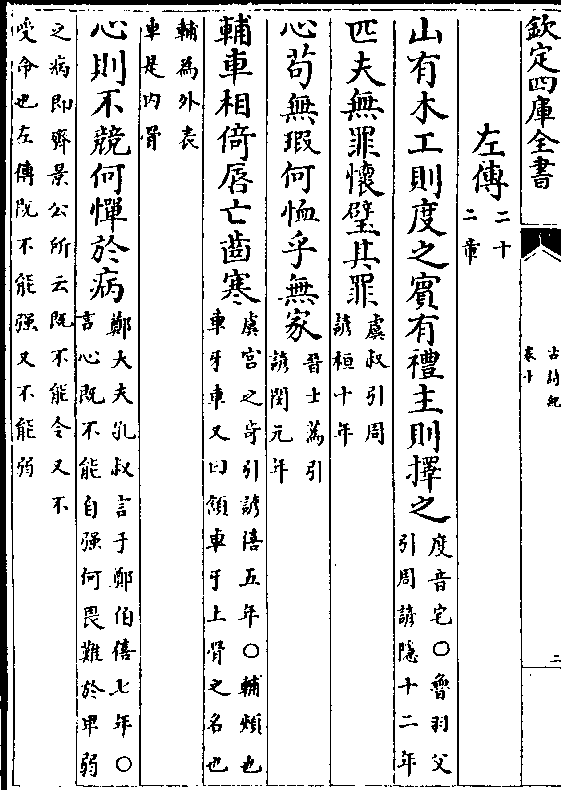 欽定四庫全書
古詩紀
卷十
二
左傳
二十
二章
山有木工則度之賓有禮主則擇之
度音宅○魯羽父
引周諺隱十二年
匹夫無罪懷璧其罪
虞叔引周
諺桓十年
心苟無瑕何恤乎無家
晉士蒍引
諺閔元年
輔車相倚脣亡齒寒
虞宮之奇引諺僖五年○輔頰也
車牙車又曰頷車牙上骨之名也
輔為外表
車是内骨
心則不競何憚於病
鄭大夫孔叔言于鄭伯僖七年○
言心既不能自强何畏難於卑弱
之病即齊景公所云既不能令又不
受命也左傳既不能强又不能弱